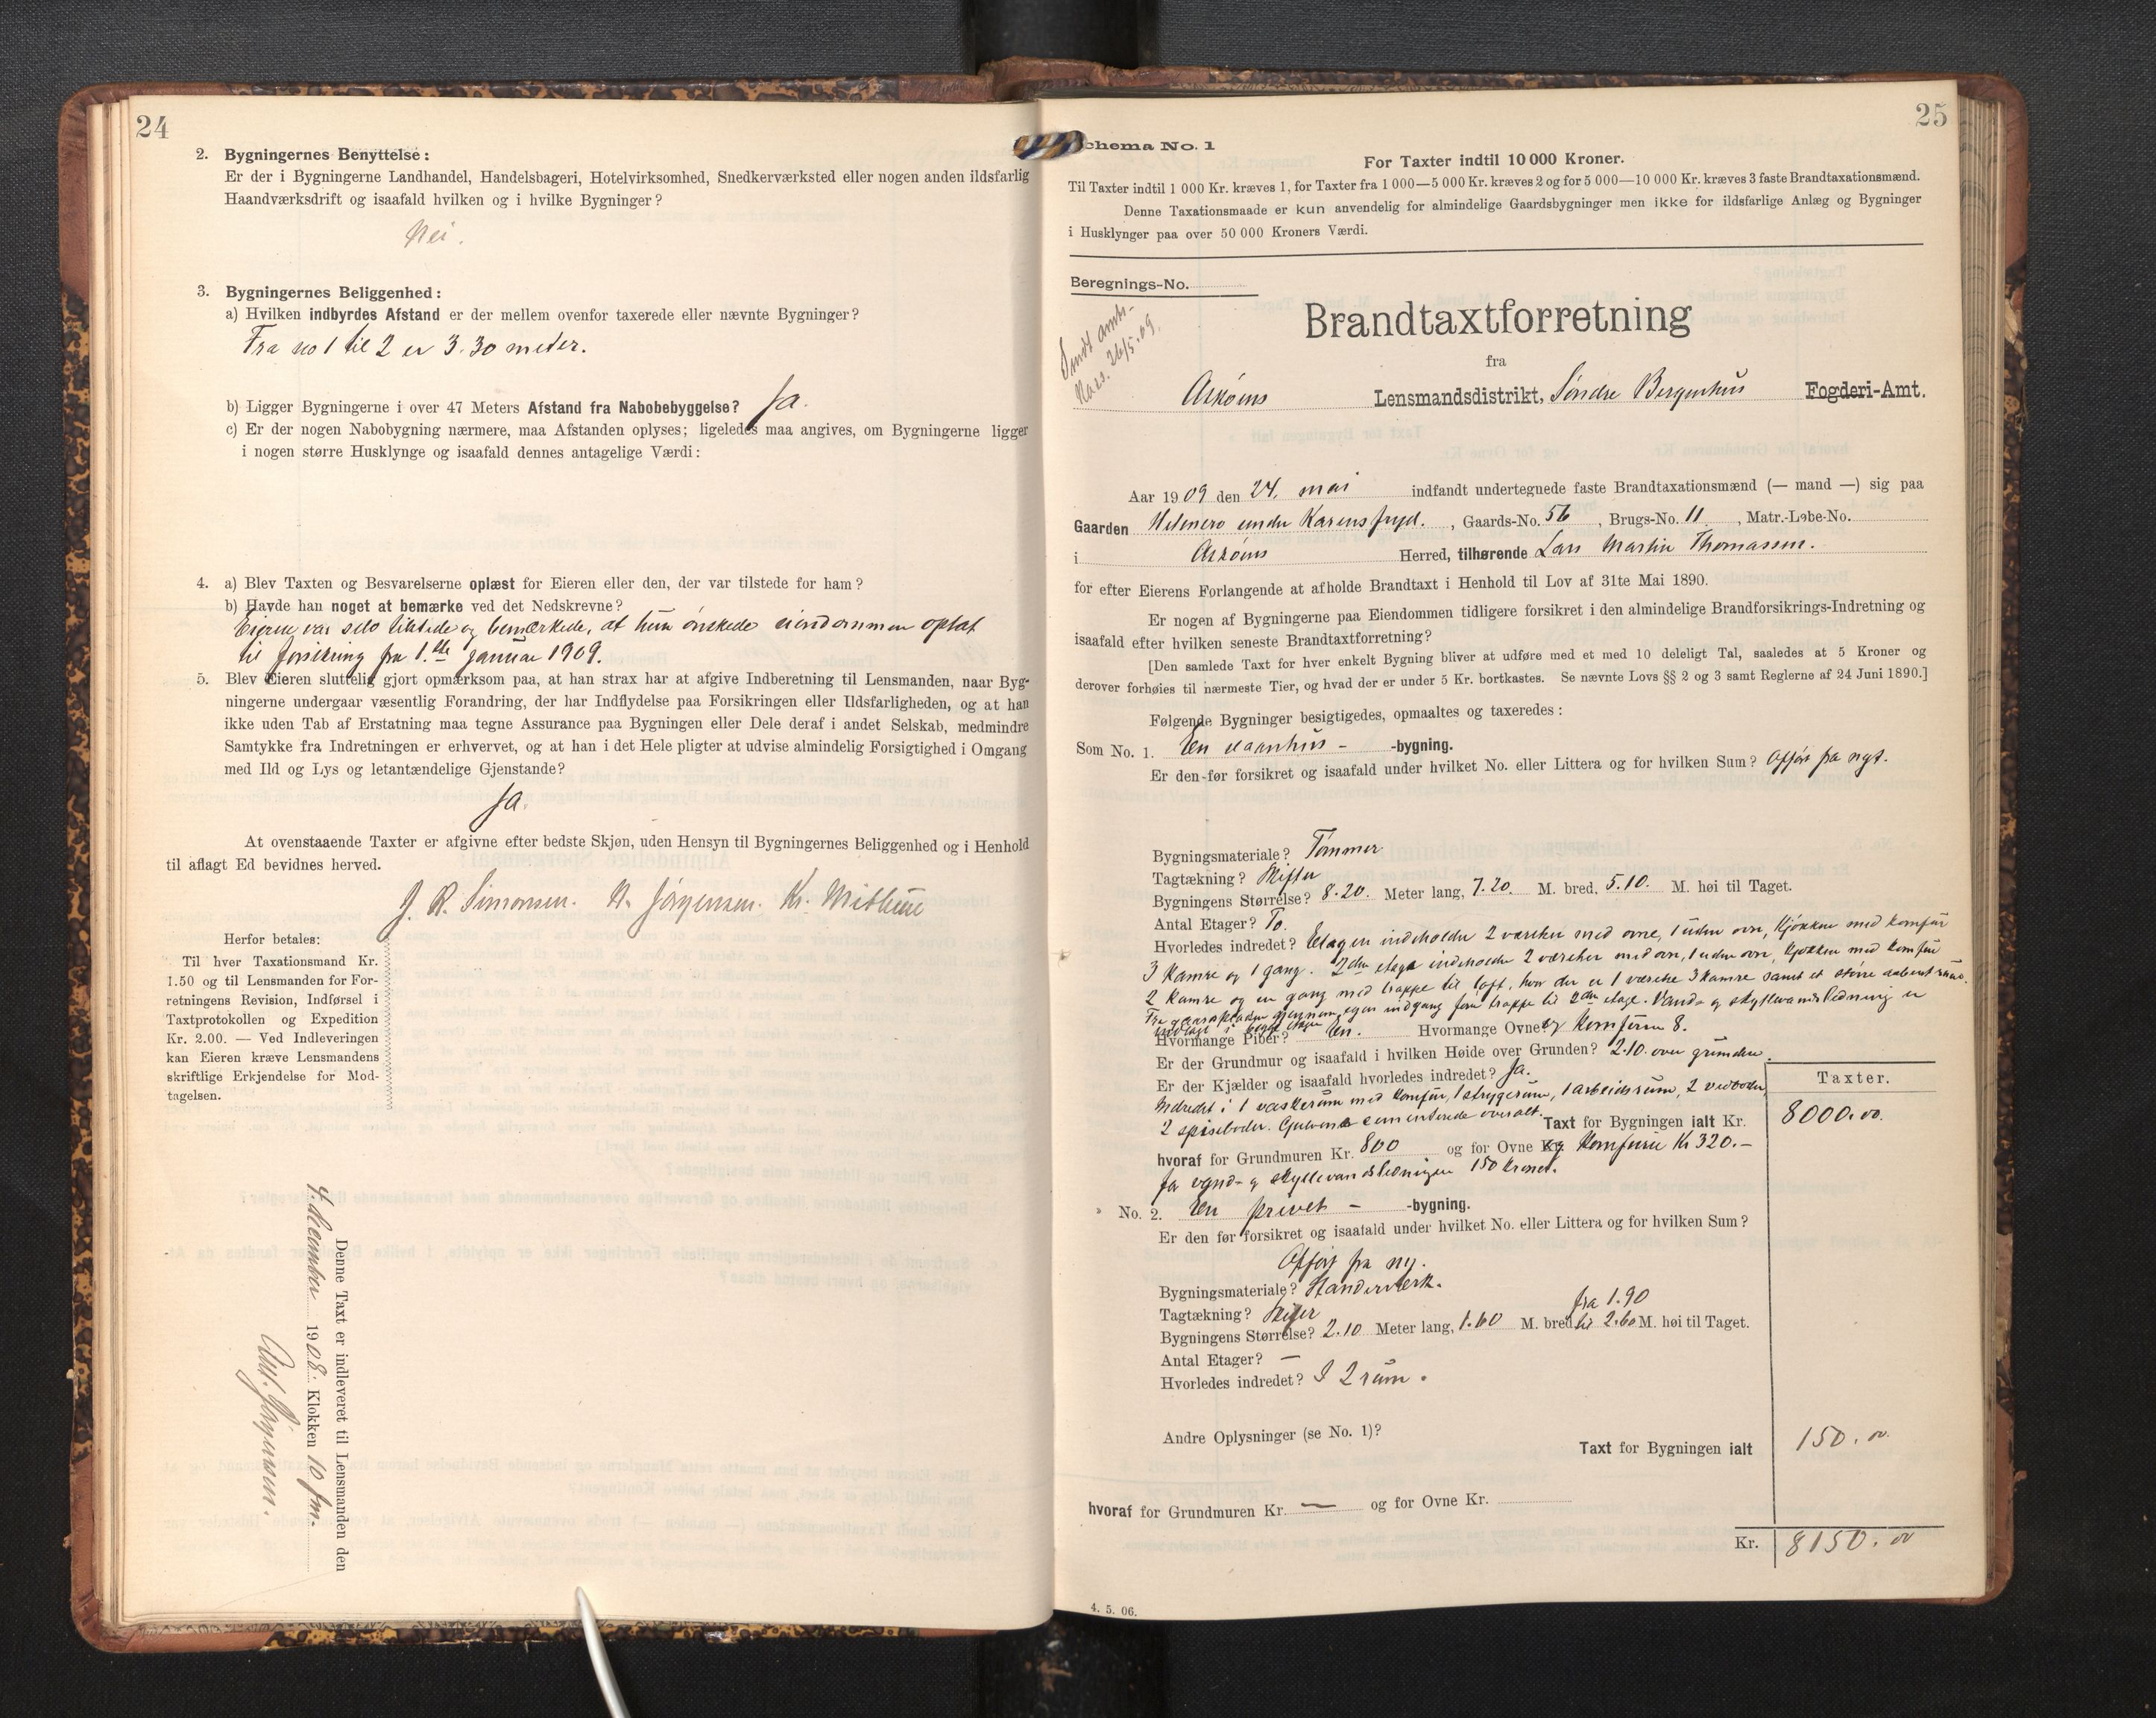 24
2. Bygningernes Benyttelse:
Er der i Bygningerne Landhandel, Handelsbageri, Hotelvirksomhed, Snedkerværksted eller nogen anden ildsfarlig
Haandværksdrift og isaafald hvilken og i hvilke Bygninger?
Nei.
3. Bygningernes Beliggenhed:
a) Hvilken indbyrdes Afstand er der mellem ovenfor taxerede eller nævnte Bygninger?
Fra no 1 til 2 er 3.30 meter.
b) Ligger Bygningerne i over 47 Meters Afstand fra Nabobebyggelse? Ja.
c) Er der nogen Nabobygning nærmere, maa Afstanden oplyses; ligeledes maa angives, om Bygningerne ligger
i nogen større Husklynge og isaafald dennes antagelige Værdi:
4. a) Blev Taxten og Besvarelserne oplæst for Eieren eller den, der var tilstede for ham?
b) Havde han noget at bemærke ved det Nedskrevne?
Eieren var selv tilstede og bemærkede, at hun ønskede eiendommen optat
til forsikring fra 1.ste januar 1909.
5. Blev Eieren sluttelig gjort opmærksom paa, at han strax har at afgive Indberetning til Lensmanden, naar Byg-
ningerne undergaar væsentlig Forandring, der har Indflydelse paa Forsikringen eller Ildsfarligheden, og at han
ikke uden Tab af Erstatning maa tegne Assurance paa Bygningen eller Dele deraf i andet Selskab, medmindre
Samtykke fra Indretningen er erhvervet, og at han i det Hele pligter at udvise almindelig Forsigtighed i Omgang
med Ild og Lys og letantændelige Gjenstande?
Ja.
At ovenstaaende Taxter er afgivne efter bedste Skjøn, uden Hensyn til Bygningernes Beliggenhed og i Henhold
til aflagt Ed bevidnes herved.
J. R. Simonsen. N. Jørgensen. Kr.
Herfor betales:
Til hver Taxationsmand Kr.
1.50 og til Lensmanden for For-
retningens Revision, Indførsel i
Taxtprotokollen og Expedition
Kr. 2.00. — Ved Indleveringen
kan Eieren kræve Lensmandens
skriftlige Erkjendelse for Mod-
tagelsen.
Denne Taxt er indleveret til Lensmanden den
4. december 1908. Klokken 10 fm.
Jørgensen.
25
Schema No. 1
For Taxter indtil 10 000 Kroner.
Til Taxter indtil 1 000 Kr. kræves 1, for Taxter fra 1 000—5 000 Kr. kræves 2 og for 5 000—10 000 Kr. kræves 3 faste Brandtaxationsmænd.
Denne Taxationsmaade er kun anvendelig for almindelige Gaardsbygninger men ikke for ildsfarlige Anlæg og Bygninger
i Husklynger paa over 50 000 Kroners Værdi.
Beregnings-No.
Sendt amts-
kass. 26/5.09.
Brandtaxtforretning
fra
Askøens Lensmandsdistrikt, Søndre Bergenhus Fogderi-Amt.
Aar 1909 den 24. mai indfandt undertegnede faste Brandtaxationsmænd (— mand —) sig paa
Gaarden under Karensfryd., Gaards-No. 56, Brugs-No. 11, Matr.-Løbe-No.
i Askøens Herred, tilhørende Lars Martin Thomassen.
for efter Eierens Forlangende at afholde Brandtaxt i Henhold til Lov af 31te Mai 1890.
Er nogen af Bygningerne paa Eiendommen tidligere forsikret i den almindelige Brandforsikrings-Indretning og
isaafald efter hvilken seneste Brandtaxtforretning?
[Den samlede Taxt for hver enkelt Bygning bliver at udføre med et med 10 deleligt Tal, saaledes at 5 Kroner og
derover forhøies til nærmeste Tier, og hvad der er under 5 Kr. bortkastes. Se nævnte Lovs §§ 2 og 3 samt Reglerne af 24 Juni 1890.]
Følgende Bygninger besigtigedes, opmaaltes og taxeredes:
Som No. 1. En vaanhus - -bygning.
Er den før forsikret og isaafald under hvilket No. eller Littera og for hvilken Sum? Opført fra nyt.
Bygningsmateriale? Tømmer
Tagtækning? Skifer
Bygningens Størrelse? 8.20. Meter lang, 7.20. M. bred, 5.10. M. høi til Taget.
Antal Etager? To.
Hvorledes indredet? Etagen indeholder 2 værelser med ovne, 1 uden ovn, Kjøkken med komfur
3 kamre og 1 gang. 2den etage indeholder 2 værelser med ovn, 1 uden ovn, Kjøkken med komfur
2 kamre og en gang med trappe til loft, hvor der er 1 værelse 3 kamre samt et større aabent rum.
Fra gaardspladsen gjennem egen indgang fører trappe til 2den etage. Vand- og skyllevandsledning er
indlagt i begge etager
Hvormange Piber? En. Hvormange Ovne? og komfurer 8.
Er der Grundmur og isaafald i hvilken Høide over Grunden? 2.10. over grunden.
Er der Kjælder og isaafald hvorledes indredet? Ja.
Indredet i 1 vaskerum med komfur, 1 strygerum, 1 arbeidsrum, 2 vedboder,
2 spiseboder. Gulvene cementerede overalt.
Taxter.
Taxt for Bygningen ialt Kr. 8000.00.
hvoraf for Grundmuren Kr. 800 og for Ovne Kr. og Komfurer Kr 320.-
for vand- og skyllevandsledningen 150 kroner.
No. 2. En privet - -bygning.
Er den før forsikret og isaafald under hvilket No. eller Littera og for hvilken Sum?
Opført fra ny.
Bygningsmateriale? Standerværk.
Tagtækning? Skifer
Bygningens Størrelse? 2.10 Meter lang, 1.60 M. bred, fra 1.90 til 2.60 M. høi til Taget.
Antal Etager? —
Hvorledes indredet? I 2 rum.
Andre Oplysninger (se No. 1)?
Taxt for Bygningen ialt 150.00
hvoraf for Grundmuren Kr. — og for Ovne Kr.
Kr. 8150.00
4. 5. 06.